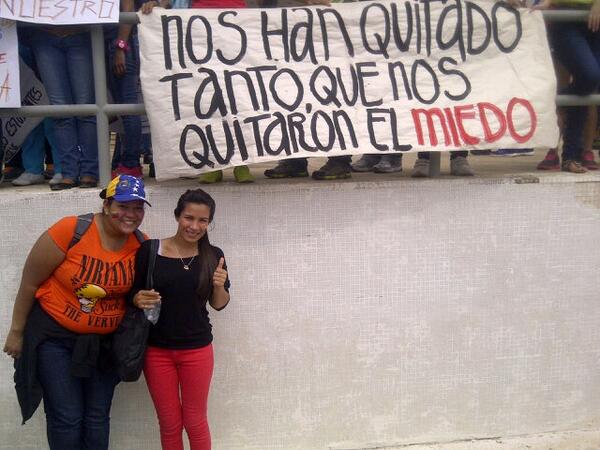 NUESTRO
NOS HAN QUITADO
TANTO, QUE NOS
QUITARÓN EL MIEDO
NIRVANA
THE VERVE